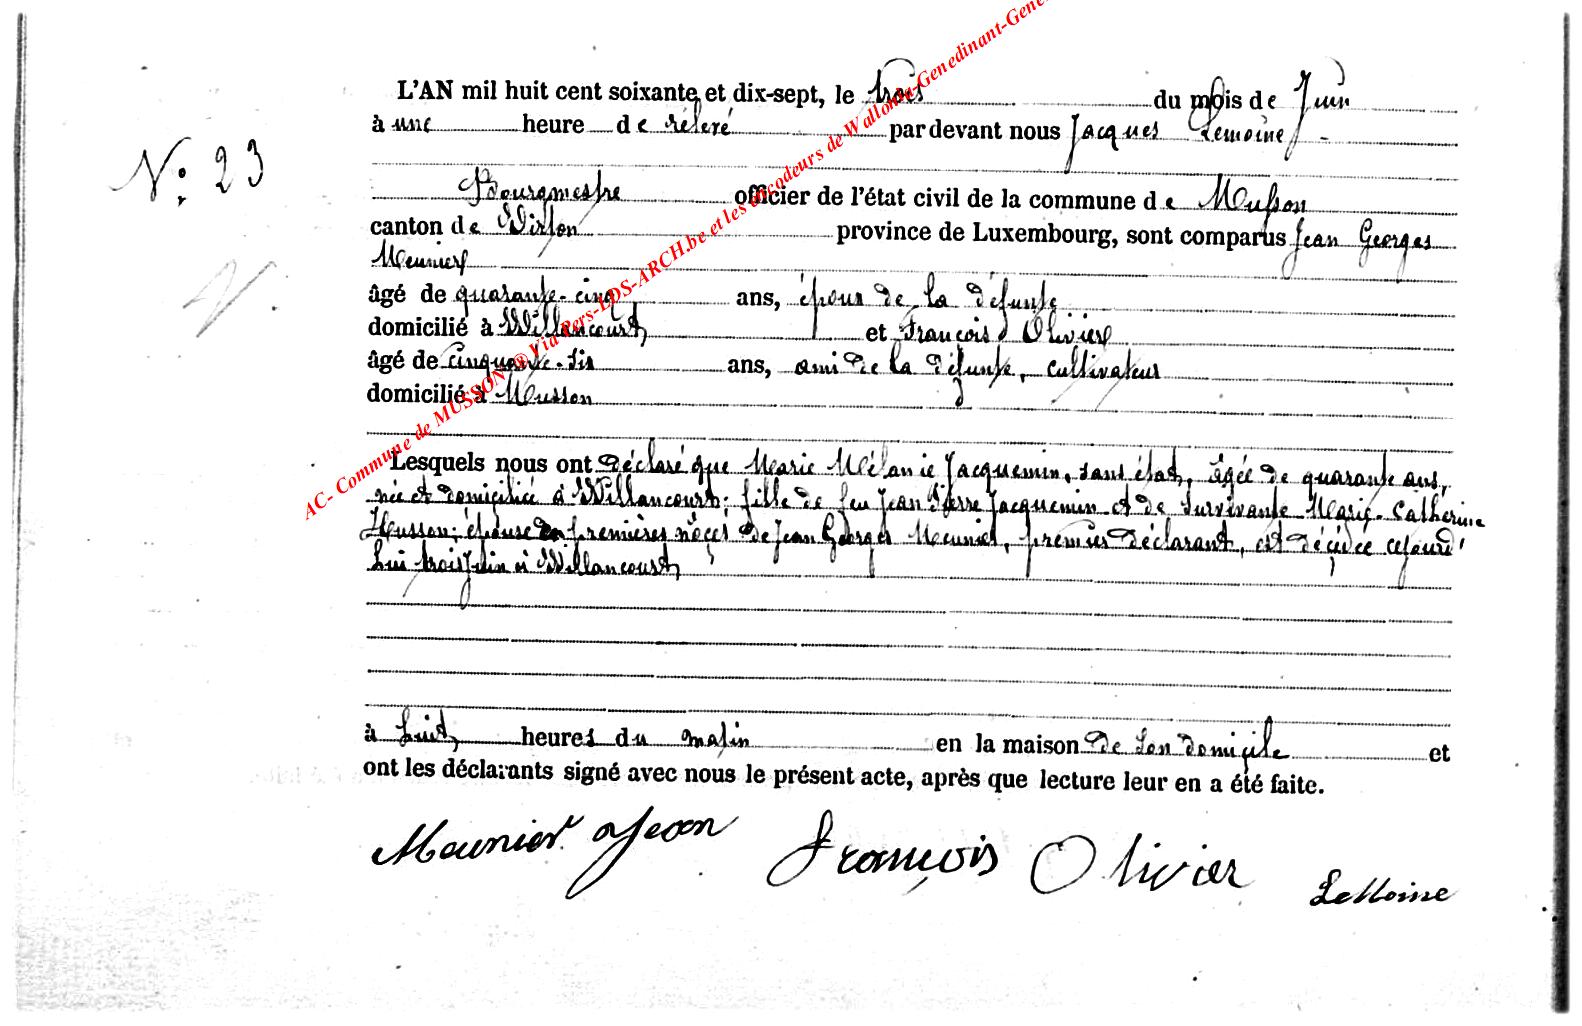 L'AN mil huit cent soixante et dix-sept, le trois du mois de Juin
à une heure de rélevé par devant nous Jacques Lemoine
N° 23
Bourgmestre officier de l'état civil de la commune de Musson
canton de Virton province de Luxembourg, sont comparus Jean Georges
Meunier
âgé de quarante-cinq ans, époux de la défunte
domicilié à Willancourt et François Olivier
âgé de cinquante-six ans, ami de la défunte, cultivateur
domicilié à Musson
Lesquels nous ont déclaré que Marie Mélanie Jacquemin, sans état, âgée de quarante ans,
née et domiciliée à Willancourt; fille de feu Jean Pierre Jacquemin et de survivante Marie-Catherine
Husson; épouse en premières nôces de Jean Georges Meunier, premier déclarant, est décédée cejourd'
hui trois Juin à Willancourt,
à huit heures du matin en la maison de son domicile et
ont les déclarants signé avec nous le présent acte, après que lecture leur en a été faite.
Meunier Jean François Olivier LeMoine
AC- Commune de MUSSON ® Via Pers-LDS-ARCH.be et les encodeurs de Wallonia-Genedinant-Gene